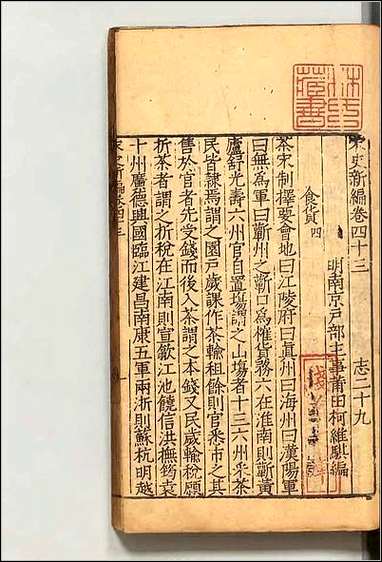 宋史新編卷四十三　志二十九
明南京戶部主事莆田柯維騏編
食貨四
茶宋制擇要會地曰江陵府曰真州曰海州曰漢陽軍
曰無為軍曰蘄州之蘄口為榷貨務六在淮南則蘄黃
廬舒光壽六州官自置場謂之山場者十三六州采茶
民皆隸焉謂之園戶歲課作茶輸租餘則官悉市之其
售於官者先受錢而後入茶謂之本錢又民歲輸稅願
折茶者謂之折稅在江南則宣歙江池饒信洪撫筠袁
十州廣德興國臨江建昌南康五軍兩浙則蘇杭明越
宋史新編卷四十三
藏書